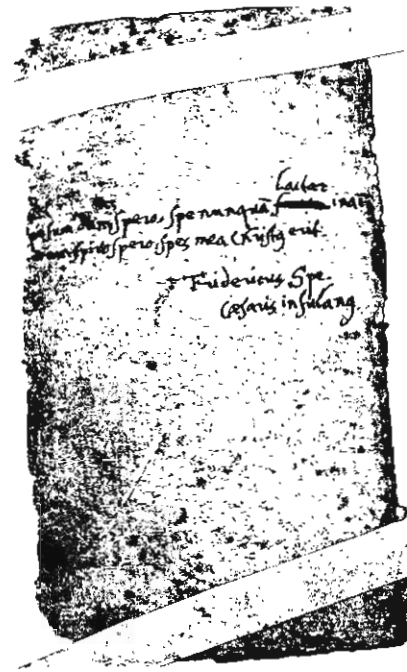 lactat
sum dum spero, spe nunquã inat
spiro spero, spes mea Christ9 erit
Fridericus Spe.
Cæsaris insulang